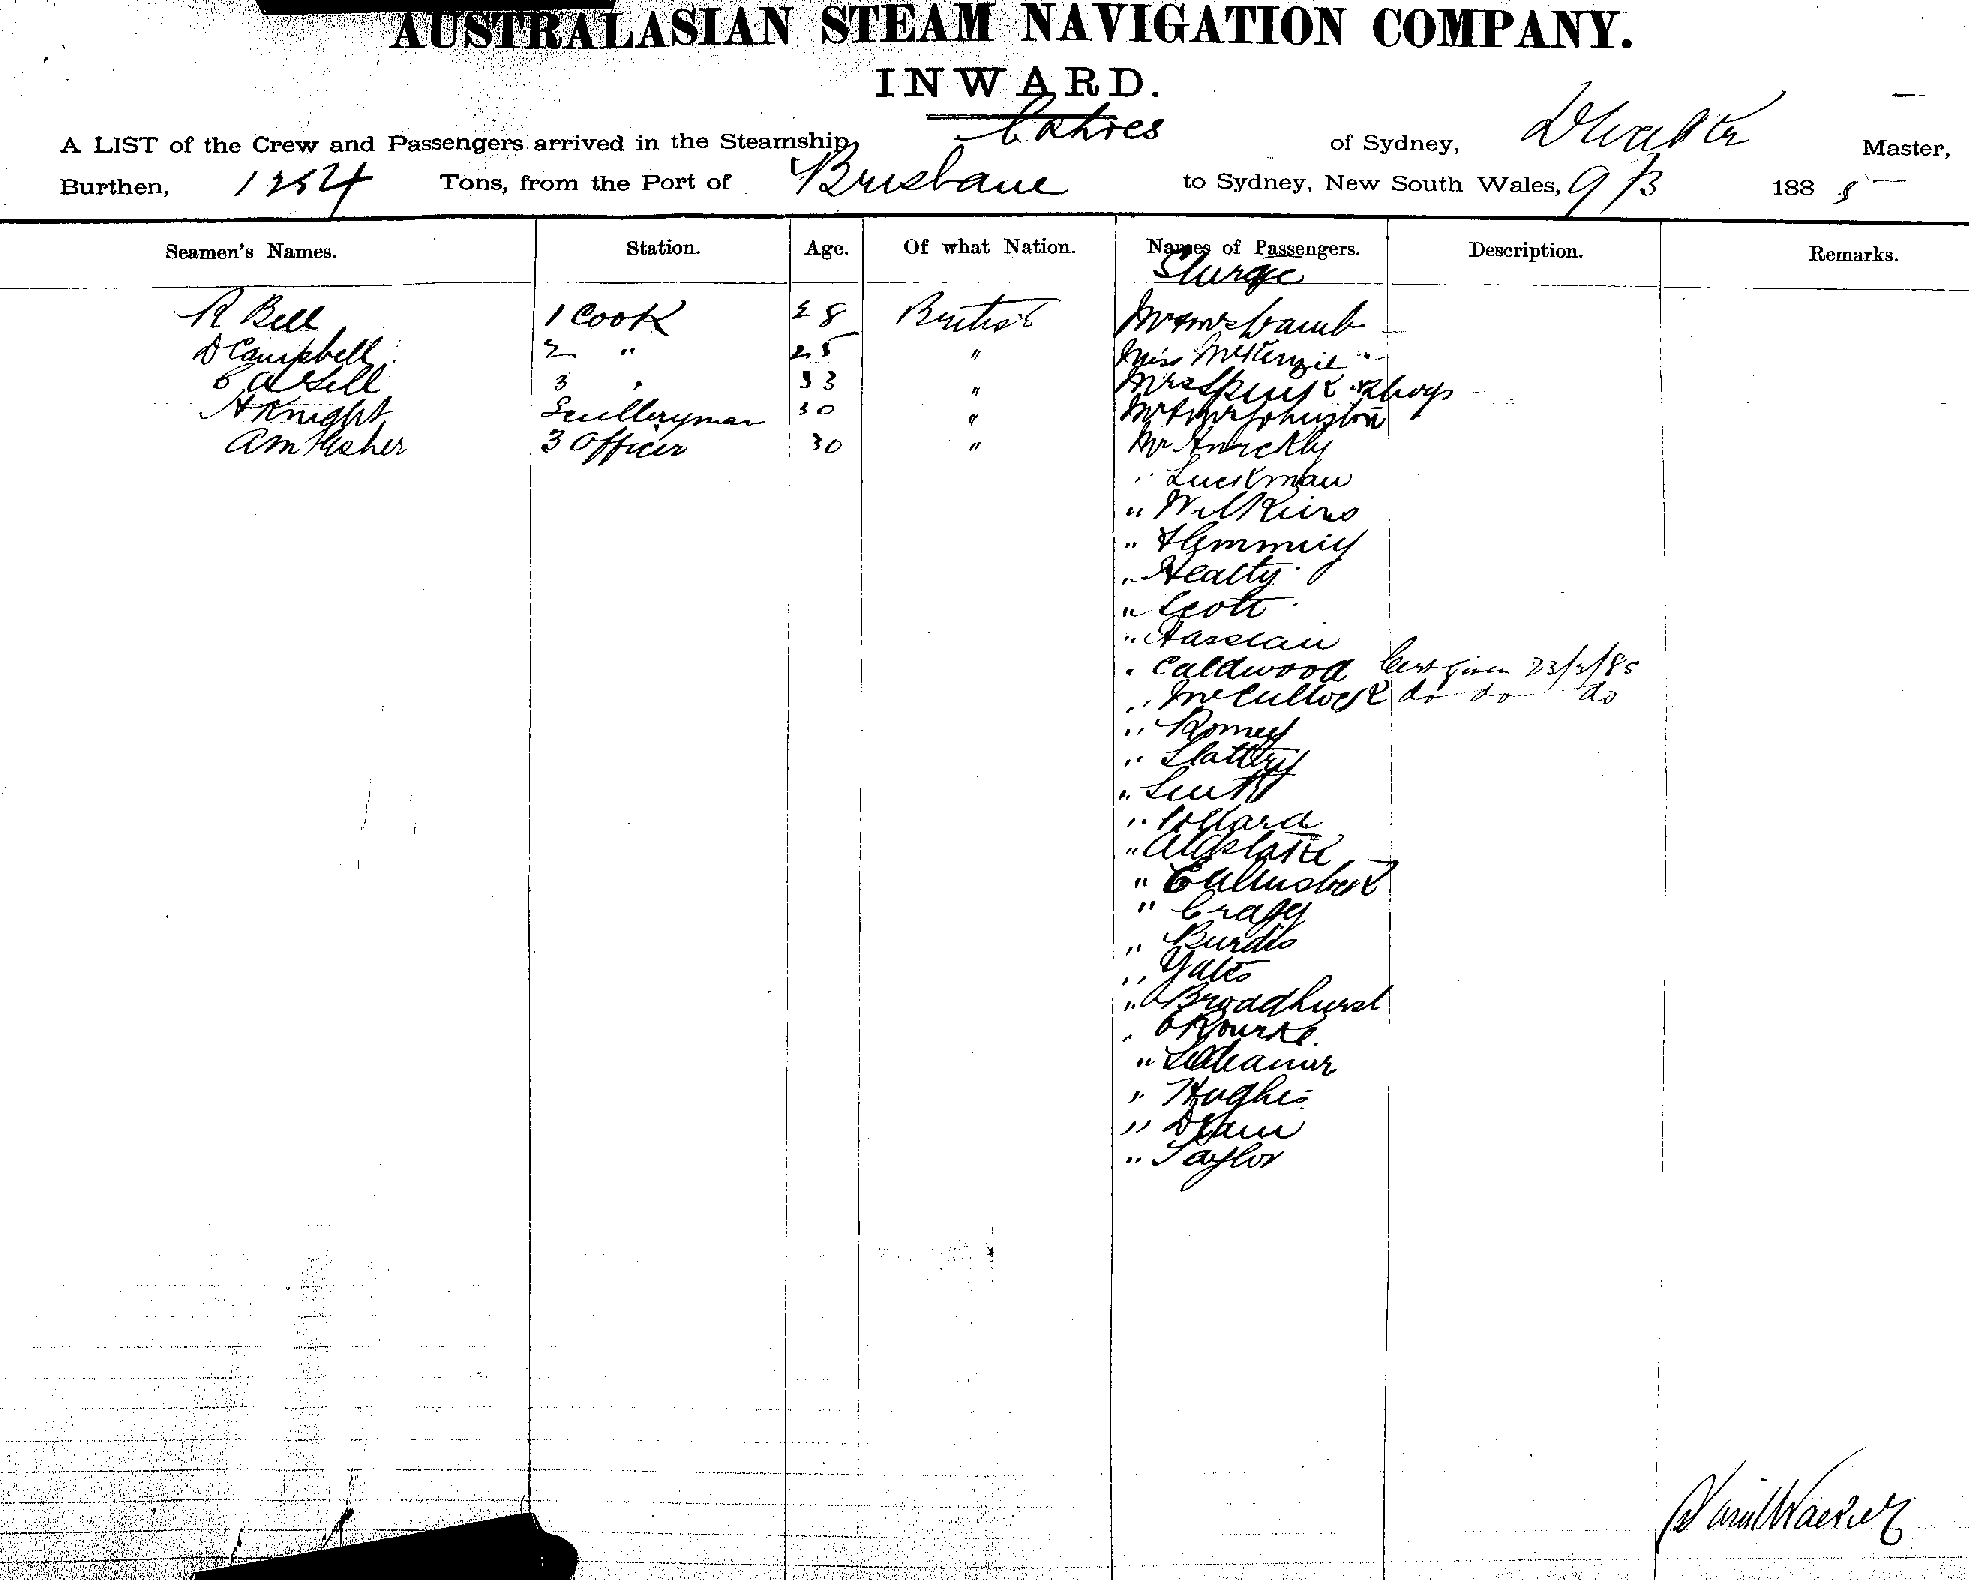 AUSTRALASIAN STEAM NAVIGATION COMPANY.
INWARD.
A LIST of the Crew and Passengers arrived in the Steamship of Sydney, D Walker Master,
Burthen, 1254 Tons, from the Port of Brisbane to Sydney, New South Wales, 9/3 1885
Seamen's Names. Station. Age. Of what Nation. Names of Passengers. Description. Remarks.
R Bell 1 Cook 28 British Mr & Mrs
D Campbell 2 " 25 " Miss McKenzie
3 " 33 " Mrs
H Knight Sculleryman 30 " Mr & Mrs Johnston
A M Fisher 3 Officer 30 " Mr
" Luckman
" Wilkins
" Flemming
" Healty
" Scott
" Hassean
" Caldwood Cert given 23/3/85
" McCullock do do do
" Romey
" Slattery
" Smith
" Pollard
"
"
" Cragg
" Burdis
" Yates
" Broadhurst
" O Rourke
"
" Hughes
"
" Taylor